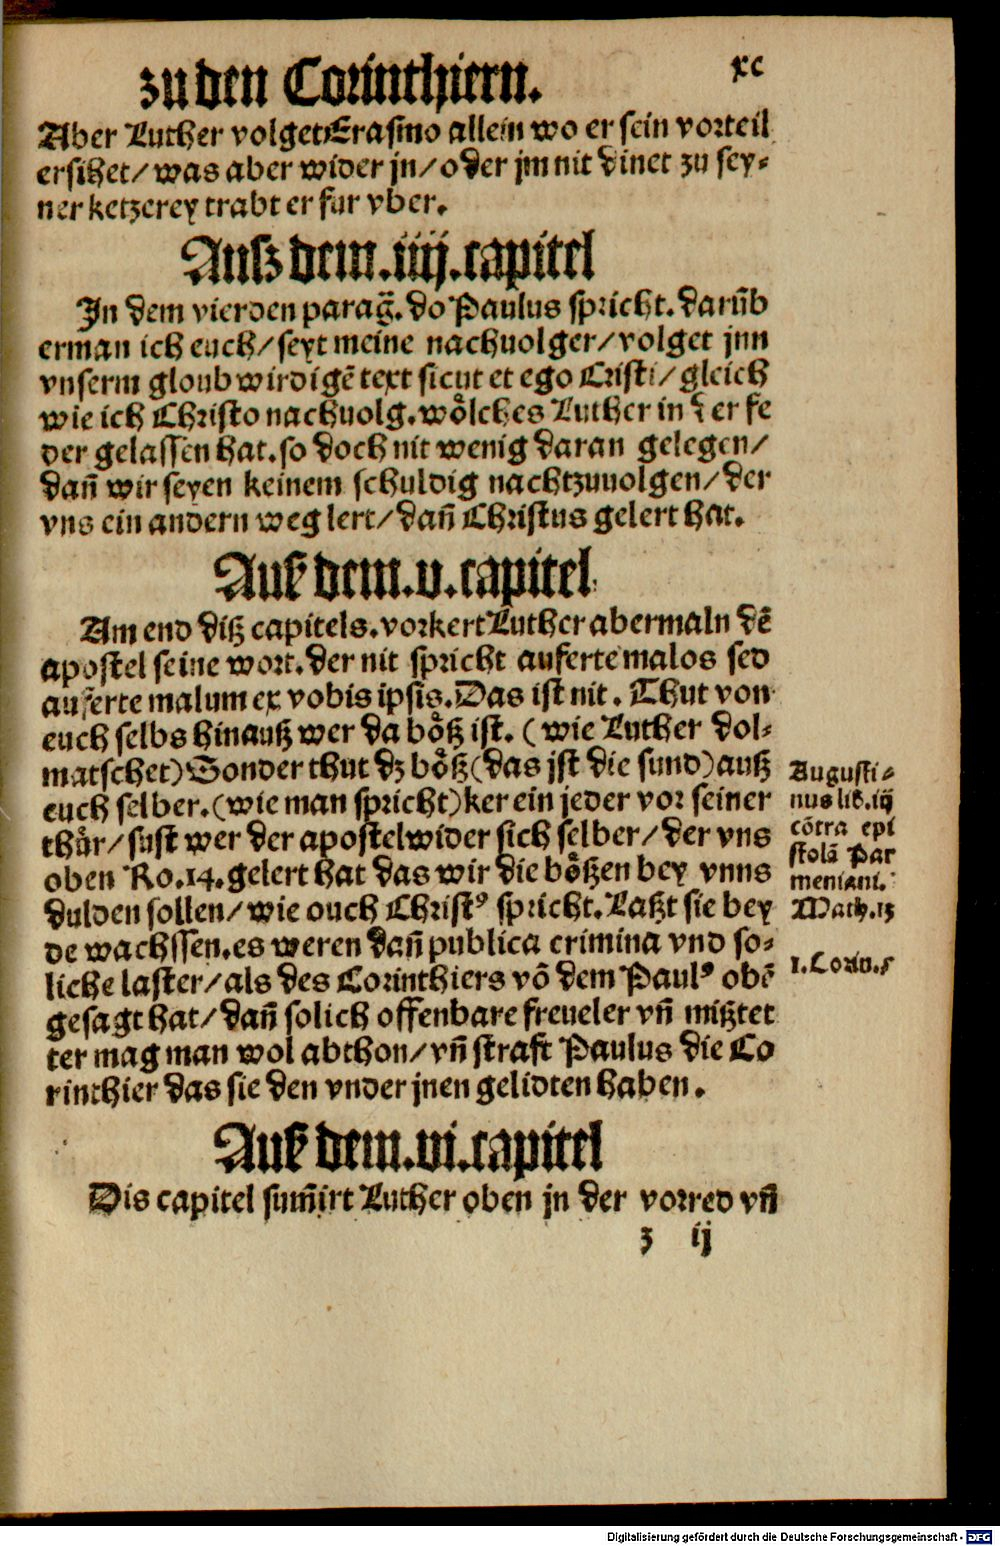 zu den Corinthiern.
xc
Aber Luther volget Erasmo allein wo er sein vorteil
ersihet/ was aber wider jn/ oder jm nit dinet zu sey-
ner ketzerey trabt er fur vber.
Ausz dem .iiij. capitel
In dem vierden parag̃. do Paulus spricht. darũb
erman ich euch/ seyt meine nachuolger/ volget jnn
vnserm gloubwirdigẽ text sicut et ego Cristi/ gleich
wie ich Christo nachuolg. woͤlches Luther in der fe
der gelassen hat. so doch nit wenig daran gelegen/
dañ wir seyen keinem schuldig nachtzuuolgen/ der
vns ein andern weg lert/ dañ Christus gelert hat.
Auß dem .v. capitel
Am end ditz capitels. vorkert Luther abermaln dẽ
apostel seine wort. der nit spricht auferte malos sed
auferte malum ex vobis ipsis. Das ist nit. Thut von
euch selbs hinautz wer da boͤtz ist. (wie Luther dol-
matschet) Sonder thut dz boͤtz (das jst die sund) autz
euch selber. (wie man spricht) ker ein jeder vor seiner
thuͤr/ sust wer der apostel wider sich selber/ der vns
oben Ro. 14. gelert hat das wir die boͤtzen bey vnns
dulden sollen/ wie ouch Christꝰ spricht. Latzt sie bey
de wachssen. es weren dañ publica crimina vnd so-
liche laster/ als des Corinthiers võ dem Paulꝰ obẽ
gesagt hat/ dañ solich offenbare freueler vñ mitztet
ter mag man wol abthon/ vñ straft Paulus die Co
rinthier das sie den vnder jnen gelidten haben.
Augusti-
nus lib. iij
cõtra epi
stolã Par
meniani.
Math. 13
1. Corin. 5
Auß dem .vi. capitel
Dis capitel sum̃irt Luther oben jn der vorred vñ
z ij
Digitalisierung gefördert durch die Deutsche Forschungsgemeinschaft - DFG